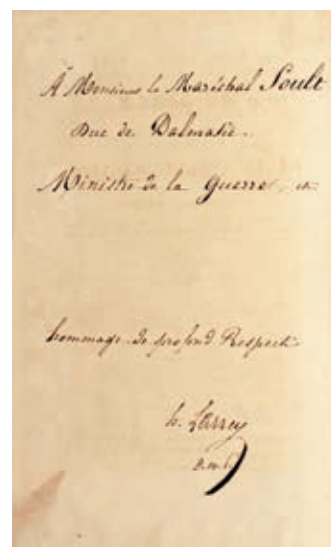 À Monsieur le Maréchal Soult
Duc de Dalmatie.
Ministre de la Guerre, &a
hommage de profond Respect.
h. Larrey
D.M.P.